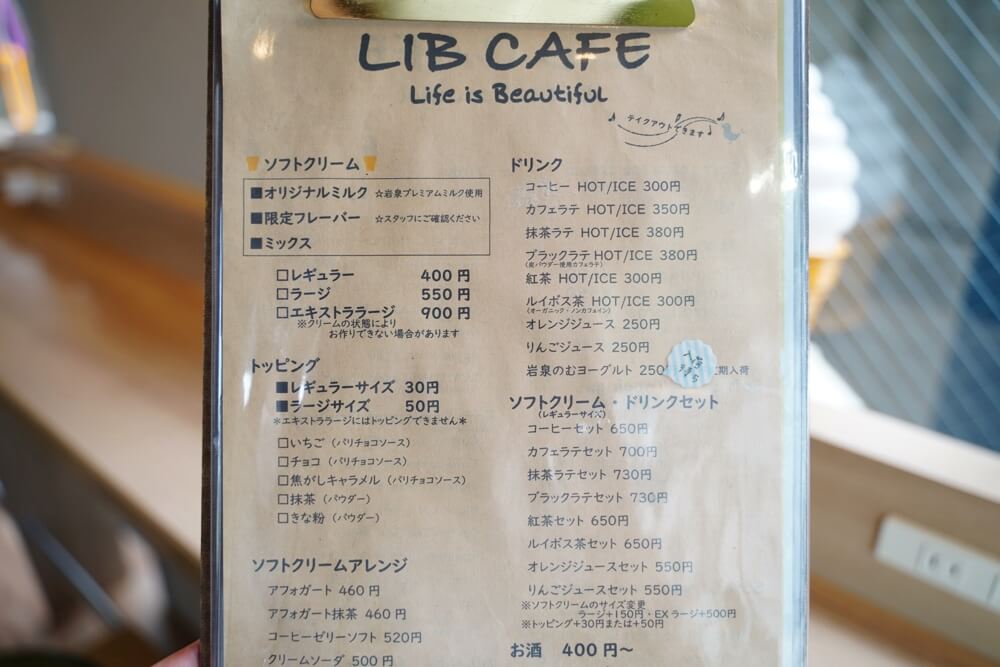 LIB CAFE
Life is Beautiful
テイクアウトできます
ソフトクリーム
■オリジナルミルク ☆岩泉プレミアムミルク使用
■限定フレーバー ☆スタッフにご確認ください
■ミックス
□レギュラー 400円
□ラージ 550円
□エキストララージ 900円
※クリームの状態により
お作りできない場合があります
トッピング
■レギュラーサイズ 30円
■ラージサイズ 50円
*エキストララージにはトッピングできません*
□いちご（パリチョコソース）
□チョコ（パリチョコソース）
□焦がしキャラメル（パリチョコソース）
□抹茶（パウダー）
□きな粉（パウダー）
ソフトクリームアレンジ
アフォガート 460円
アフォガート抹茶 460円
コーヒーゼリーソフト 520円
クリームソーダ 500円
ドリンク
コーヒー HOT/ICE 300円
カフェラテ HOT/ICE 350円
抹茶ラテ HOT/ICE 380円
ブラックラテ HOT/ICE 380円
（炭パウダー使用カフェラテ）
紅茶 HOT/ICE 300円
ルイボス茶 HOT/ICE 300円
（オーガニック・ノンカフェイン）
オレンジジュース 250円
りんごジュース 250円
岩泉のむヨーグルト 250 期入荷
ソフトクリーム・ドリンクセット
（レギュラーサイズ）
コーヒーセット 650円
カフェラテセット 700円
抹茶ラテセット 730円
ブラックラテセット 730円
紅茶セット 650円
ルイボス茶セット 650円
オレンジジュースセット 550円
りんごジュースセット 550円
※ソフトクリームのサイズ変更
ラージ+150円・EXラージ+500円
※トッピング+30円または+50円
お酒 400円～